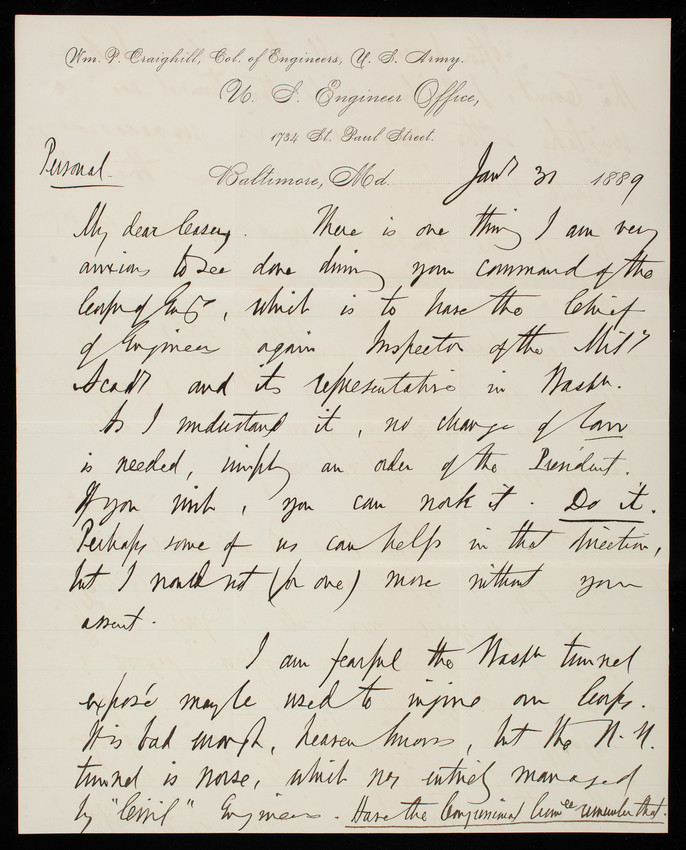 Wm. P. Craighill, Col. of Engineers, U. S. Army.
U. S. Engineer Office,
1734 St. Paul Street.
Personal
Baltimore, Md. Jany 31 1889
My dear Casey. There is one thing I am very
anxious to see done during your command of the
Corps of Engrs, which is to have the Chief
of Engineers again Inspector of the Mily
Acady and its representative in Washn.
As I understand it, no change of law
is needed, simply an order of the President.
If you wish, you can work it. Do it.
Perhaps some of us can help in that direction,
but I would not (for one) move without your
assent.
I am fearful the Washn tunnel
exposé may be used to injure our Corps.
It is bad enough, heaven knows, but the N.Y.
tunnel is worse, which was entirely managed
by "Civil" Engineers. Have the Congressional Comee remember that.